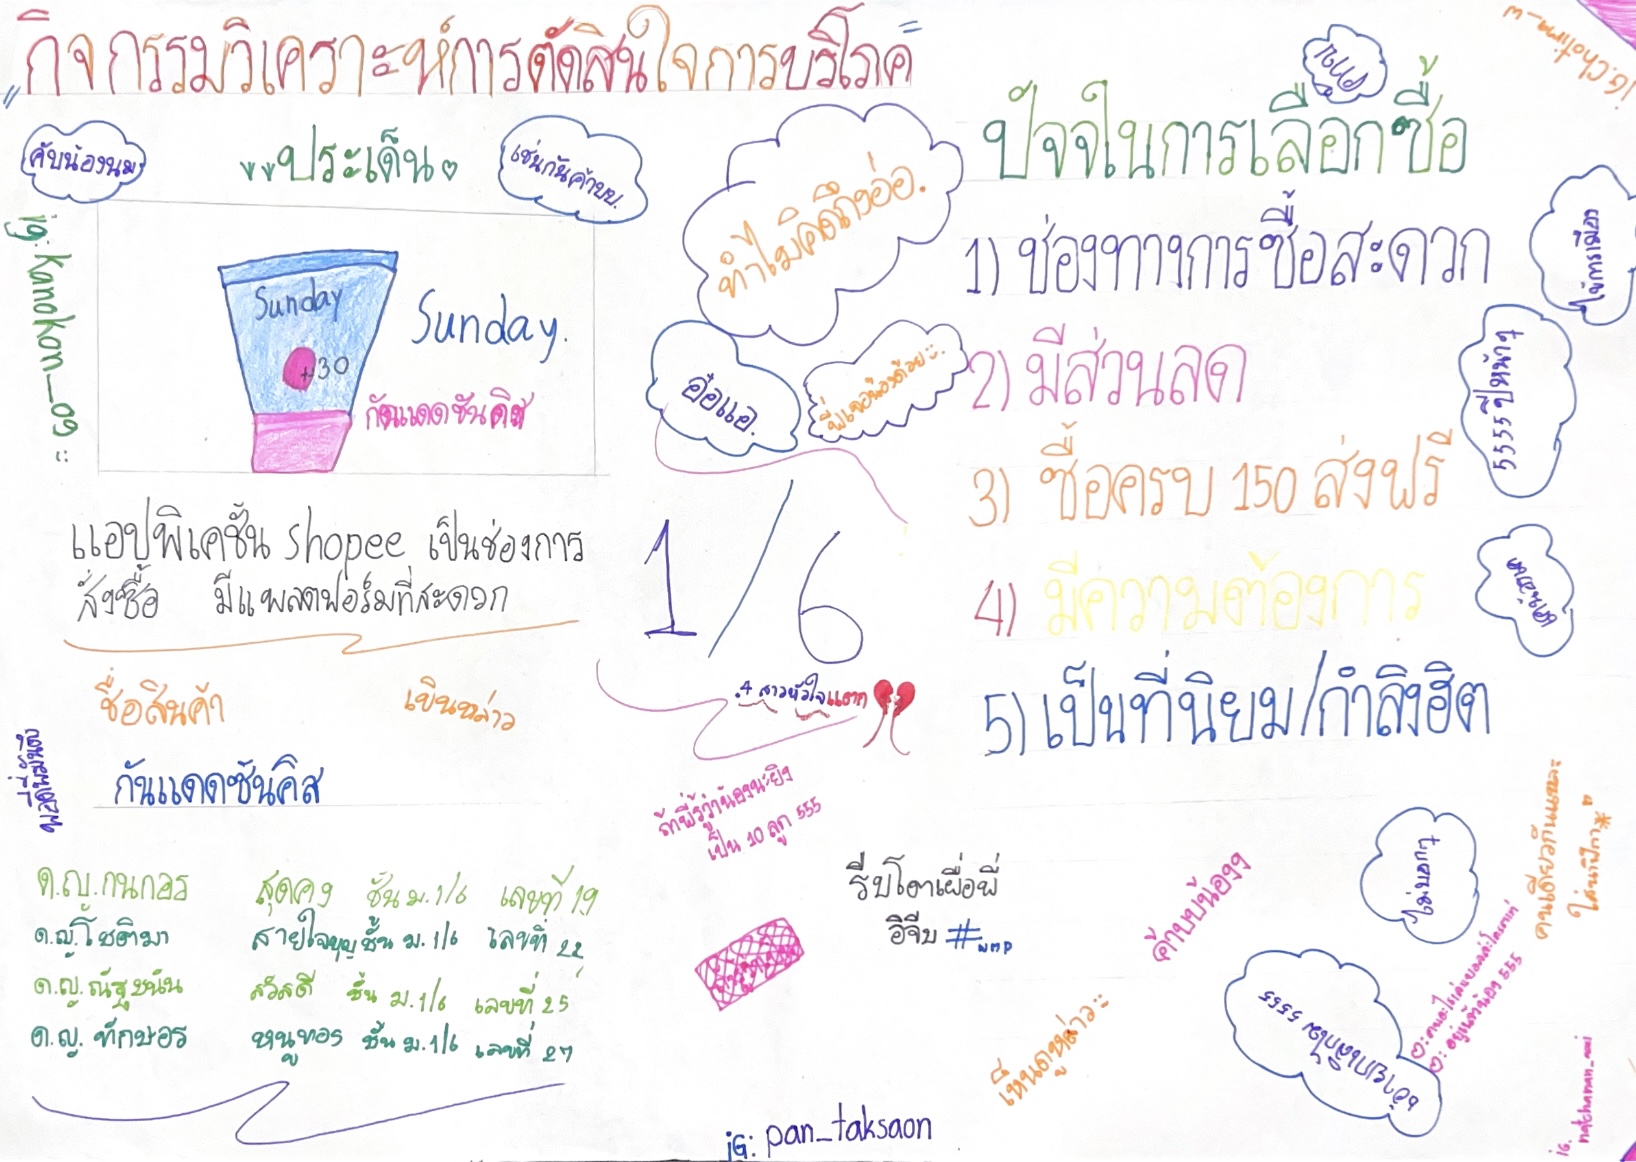 "กิจกรรมวิเคราะห์การตัดสินใจการบริโภค"
คับน้องนม
ประเด็น
เช่นกันค้าบบ.
ig: Kanokon_09
Sunday
+30
Sunday.
กันแดดซันคิส
แอปพิเคชั้น shopee เป็นช่องการ
สั่งซื้อ มีแพลตฟอร์มที่สะดวก
ชื่อสินค้า
กันแดดซันคิส
ด.ญ.กนกอร สุดคง ชั้น ม.1/6 เลขที่ 19
ด.ญ.โชติมา สายใจบุญ ชั้น ม.1/6 เลขที่ 22
ด.ญ.ณัฐชนัน สวัสดี ชั้น ม.1/6 เลขที่ 25
ด.ญ. ทักษอร หนูทอง ชั้น ม.1/6 เลขที่ 27
ทำไมคิดถึงอ่อ.
อ๋อแอ.
1/6
4 สาวหัวใจแตก
ถ้าพี่รู้ว่าน้องนะยิง
เป็น 10 ลูก 555
รีบโตเผื่อพี่
อิจีบ #
ค้าบบน้องง
ig: pan_taksaon
ig.Chotima_w
ปัจจัในการเลือกซื้อ
1) ช่องทางการซื้อสะดวก
2) มีส่วนลด
3) ซื้อครบ 150 ส่งฟรี
4) มีความต้องการ
5) เป็นที่นิยม/กำลังฮิต
ใช่การเมือง
5555 ปีหน้าๆ
ไม่บอกๆ
คนเดียวกันแหละ
ig. natchanan_nai